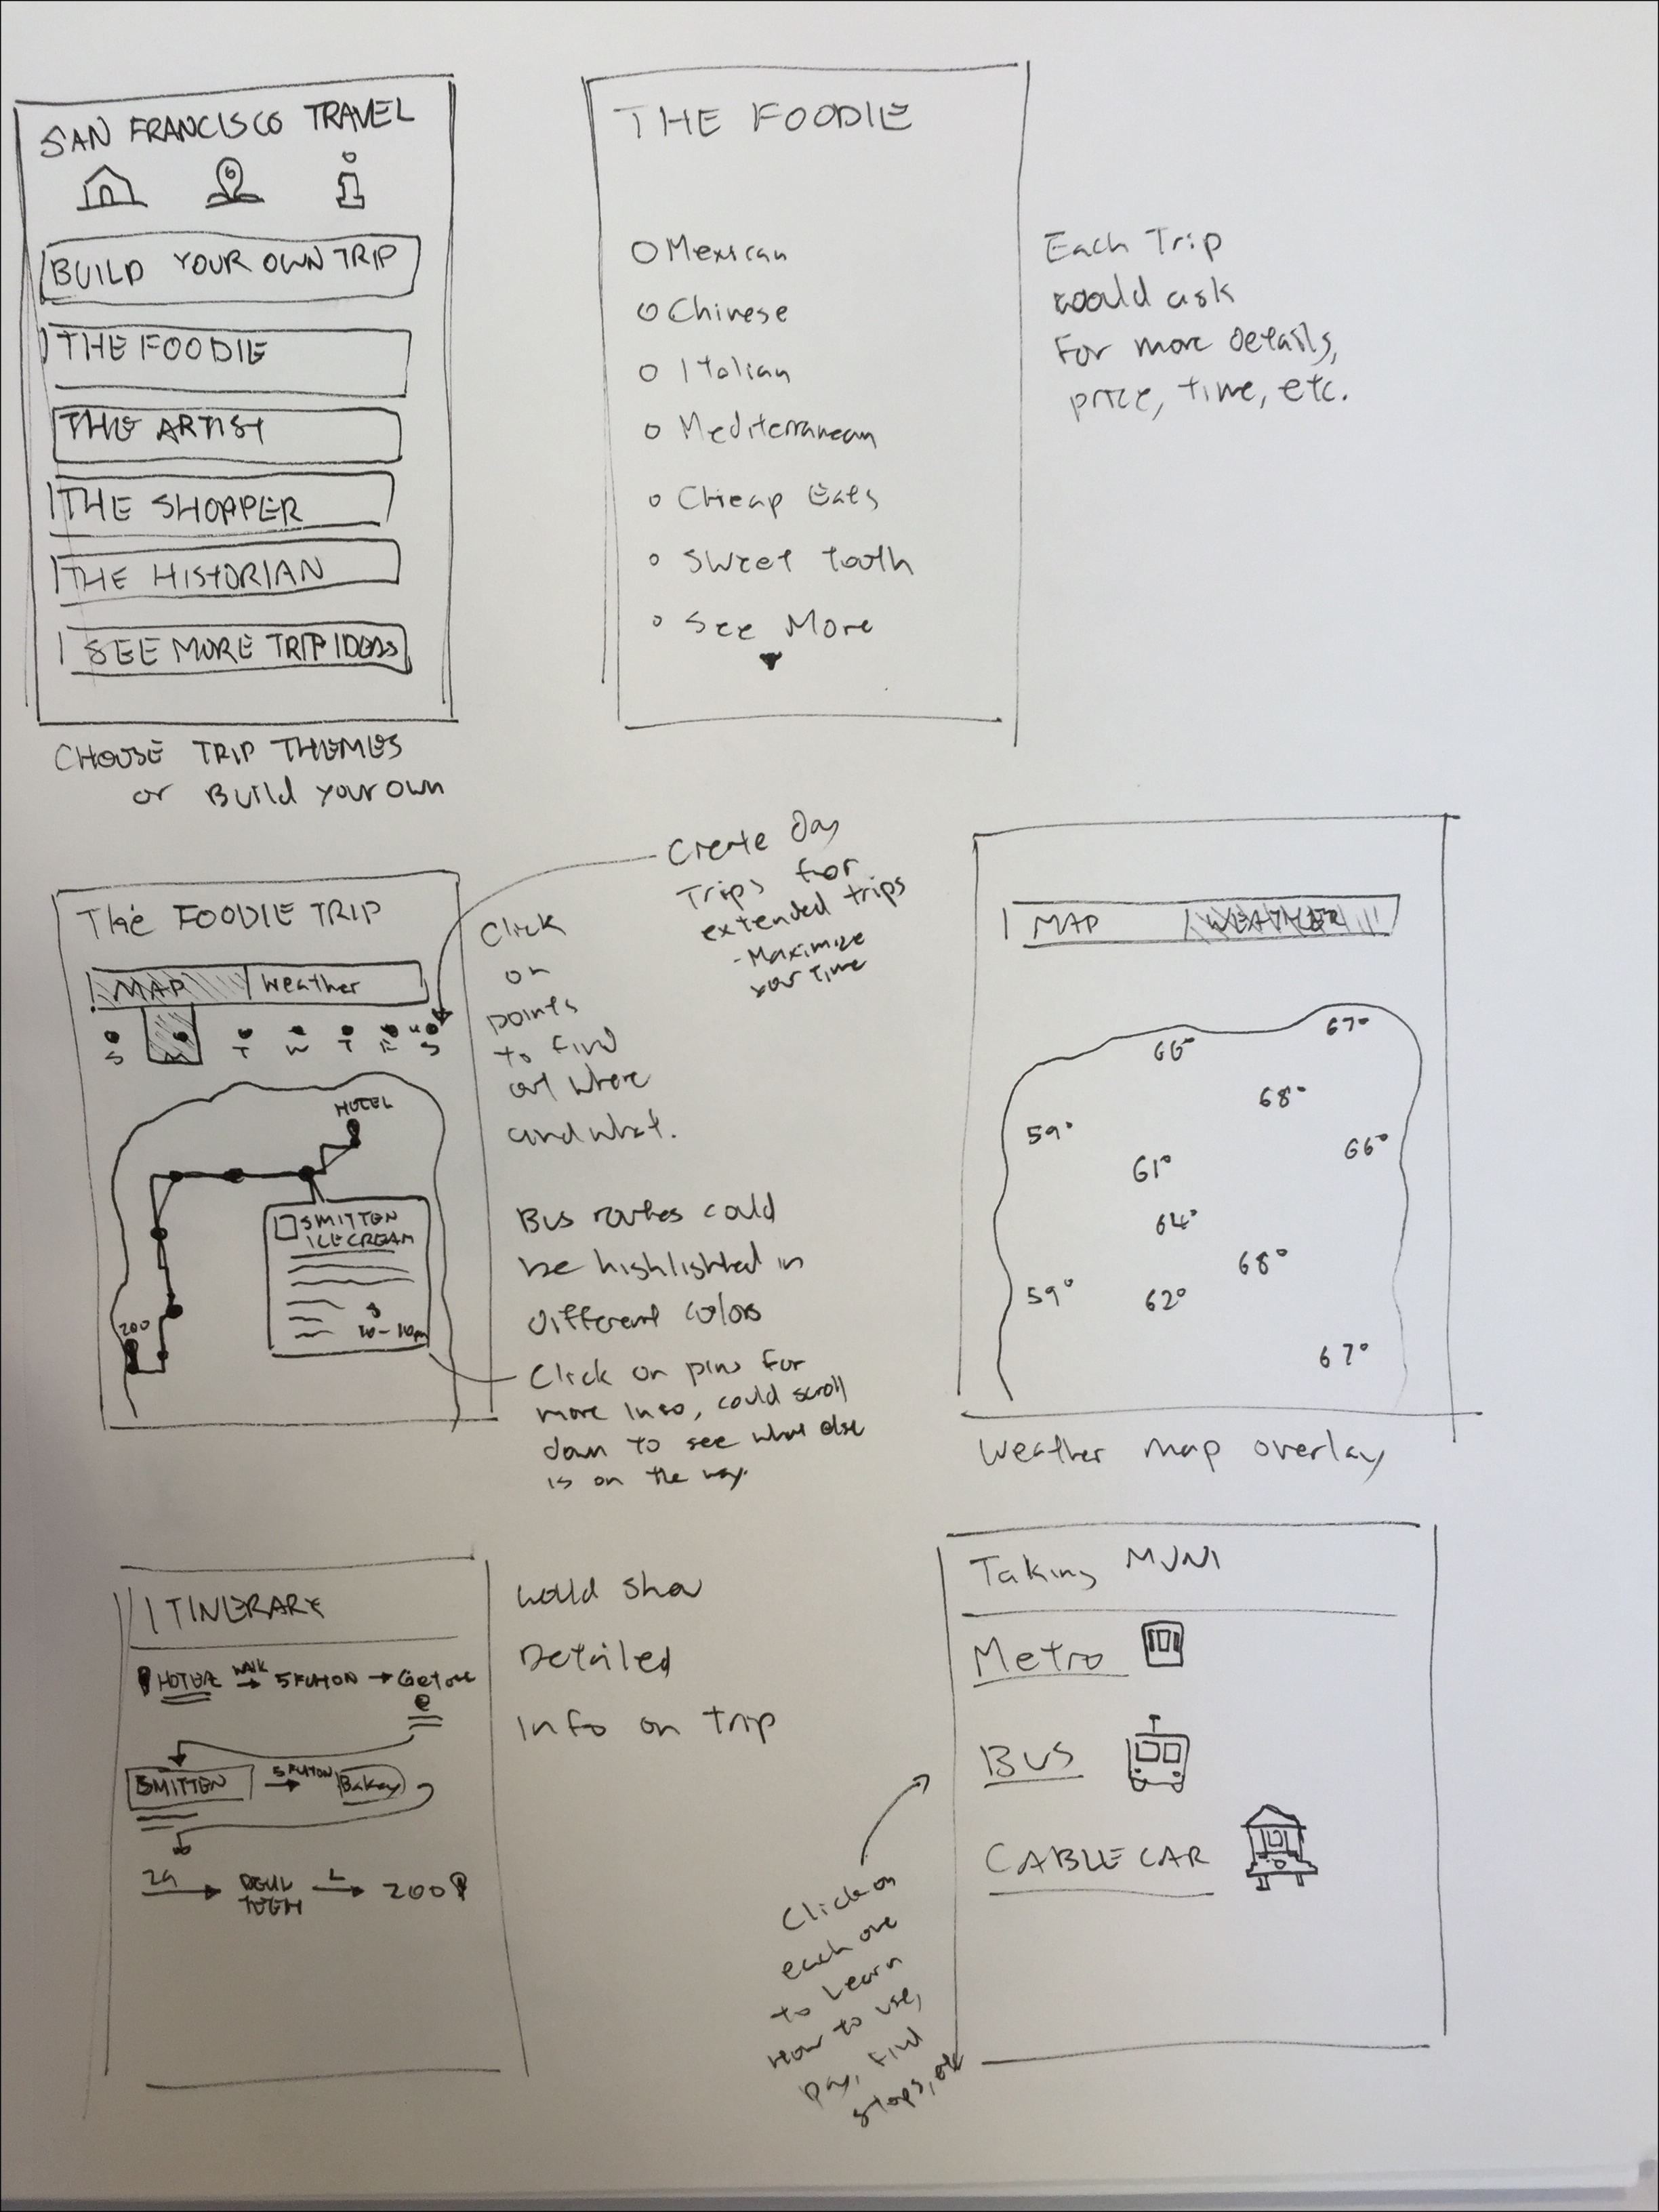 SAN FRANCISCO TRAVEL
BUILD YOUR OWN TRIP
THE FOODIE
THE ARTIST
THE SHOPPER
THE HISTORIAN
SEE MORE TRIP IDEAS
CHOOSE TRIP THEMES
or Build your own
THE FOODIE
Mexican
Chinese
Italian
Mediterranean
Cheap Eats
Sweet tooth
See More
Each Trip
would ask
For more details,
price, time, etc.
The FOODIE TRIP
MAP Weather
S M T W T F S
HOTEL
SMITTEN
ICE CREAM
10-10pm
ZOO
Create Day
Trips for
extended trips
- Maximize
your time
Click
on
points
to find
out where
and what.
Bus routes could
be highlighted in
different colors
Click on pins for
more info, could scroll
down to see what else
is on the way.
MAP WEATHER
67°
66°
68°
59°
66°
61°
64°
68°
59°
62°
67°
Weather map overlay
ITINERARY
HOTEL WALK → 5 FULTON → Get out
SMITTEN 5 FULTON → Bakery
29 → DEVIL L → ZOO
TEETH
would show
Detailed
info on trip
Taking MUNI
Metro
BUS
CABLE CAR
Click on
each one
to Learn
How to use,
pay, find
stops, etc